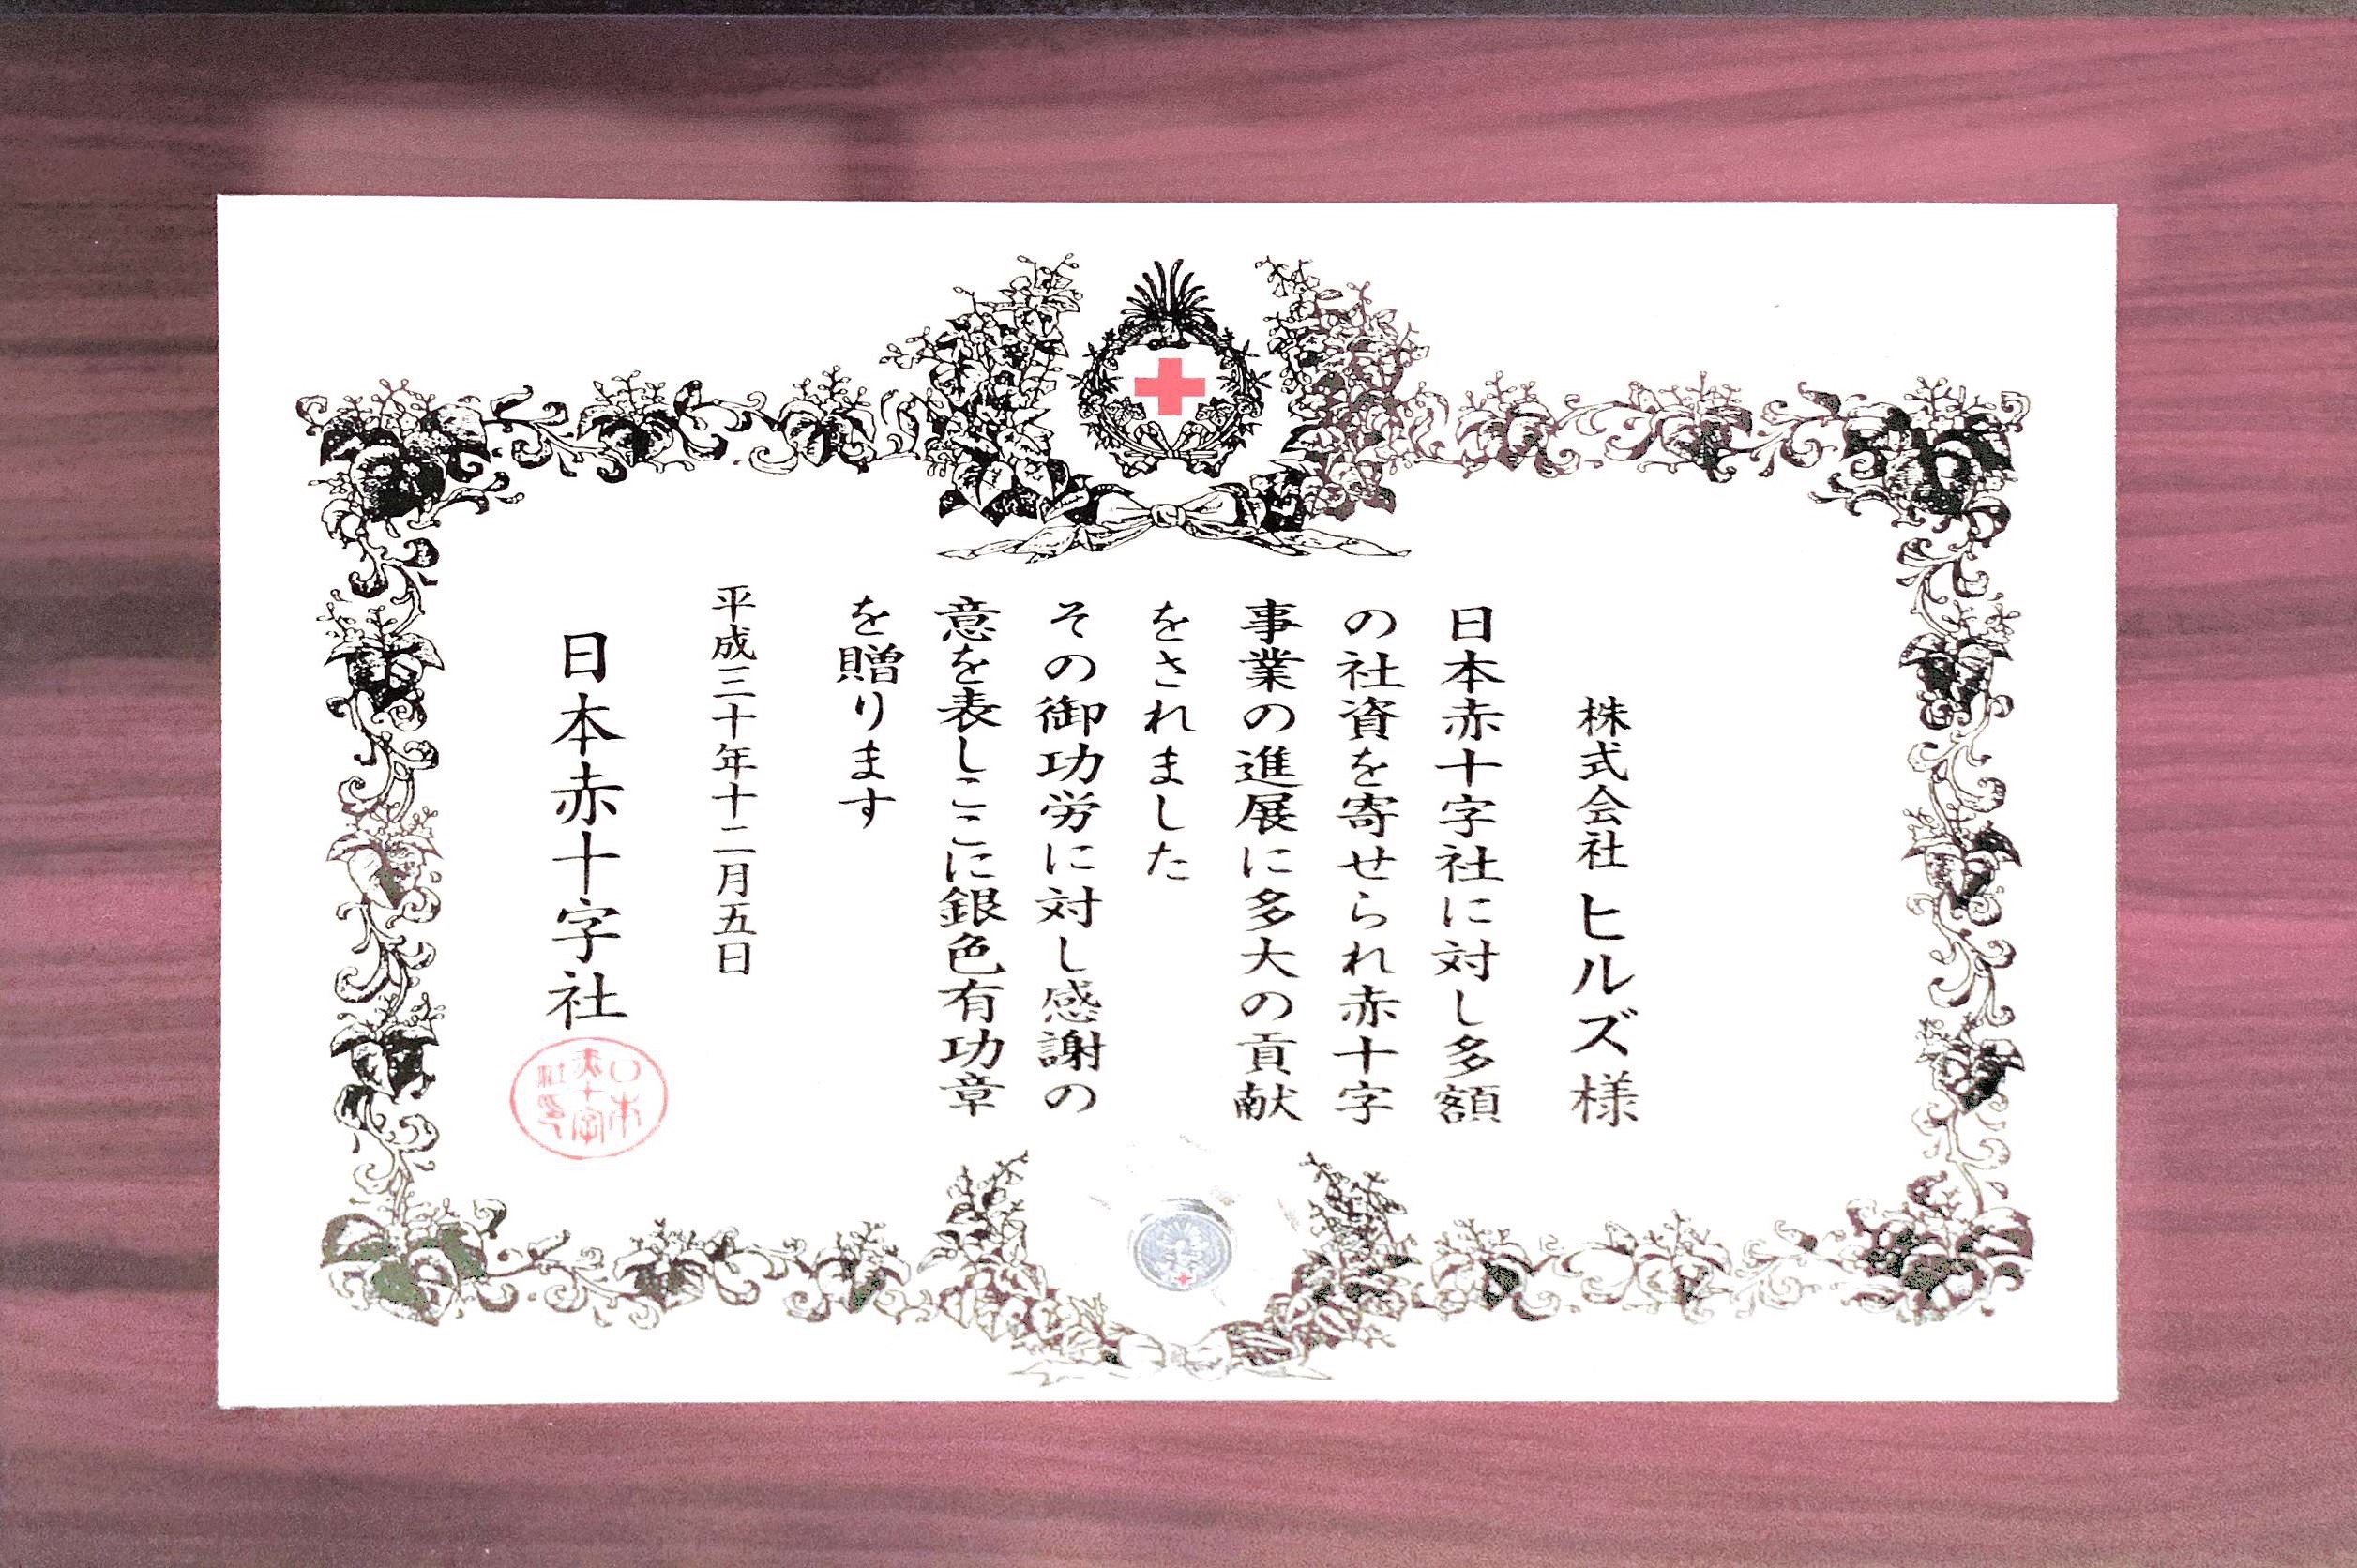 株式会社 ヒルズ 様
日本赤十字社に対し多額
の社資を寄せられ赤十字
事業の進展に多大の貢献
をされました
その御功労に対し感謝の
意を表しここに銀色有功章
を贈ります
平成三十年十二月五日
日本赤十字社
日本
赤十字
社印